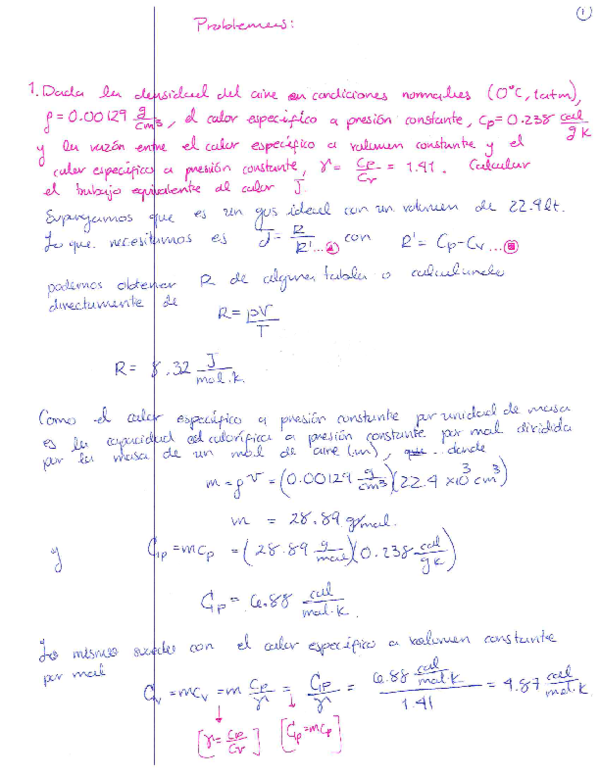 1
Problemas:
1. Dada la densidad del aire en condiciones normales (0°C, 1atm),
ρ = 0.00129 g/cm³, el calor específico a presión constante, Cp = 0.238 cal/g K
y la razón entre el calor específico a volumen constante y el
calor específico a presión constante, γ = Cp/Cv = 1.41. Calcular
el trabajo equivalente al calor J.
Supongamos que es un gas ideal con un volumen de 22.4 lt.
Lo que necesitamos es J = R/R' ... con R' = Cp - Cv ...
podemos obtener R de alguna tabla o calculando
directamente de
R = pV/T
R = 8.32 J/mol.k
Como el calor específico a presión constante por unidad de masa
es la capacidad calorífica a presión constante por mol dividida
por la masa de un mol de aire (m), donde
m = ρV = (0.00129 g/cm³)(22.4 x10³ cm³)
m = 28.89 g/mol.
y Cp = mcp = (28.89 g/mol)(0.238 cal/g k)
Cp = 6.88 cal/mol.k
Lo mismo sucede con el calor específico a volumen constante
por mol
Cv = mcv = m cp/γ = Cp/γ = 6.88 cal/mol.k / 1.41 = 4.87 cal/mol.k
[γ = cp/cv] [Cp = mcp]